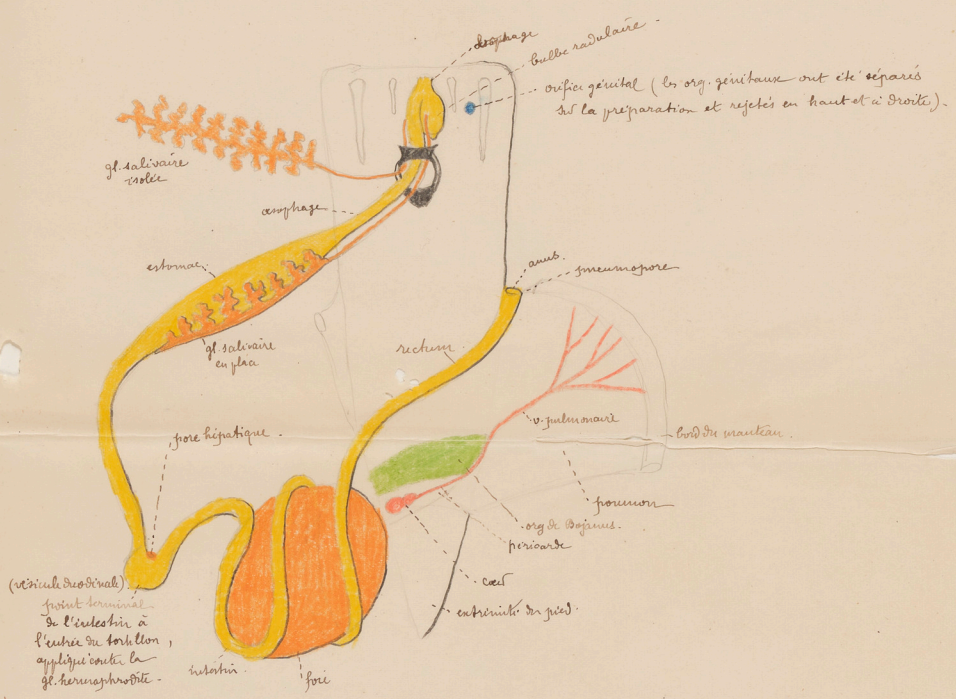 œsophage
bulbe radulaire.
orifice génital (les org. génitaux ont été séparés
sur la préparation et rejetés en haut et à droite).
gl. salivaire
isolée
œsophage
anus.
pneumopore
estomac
gl. salivaire
en place
rectum
v. pulmonaire
bord du manteau.
pore hépatique.
poumon
org de Bojanus.
péricarde
cœur
extrémité du pied.
(vésicule duodénale)
point terminal
de l'intestin à
l'entrée du tortillon,
appliqué contre la
gl. hermaphrodite.
intestin.
foie